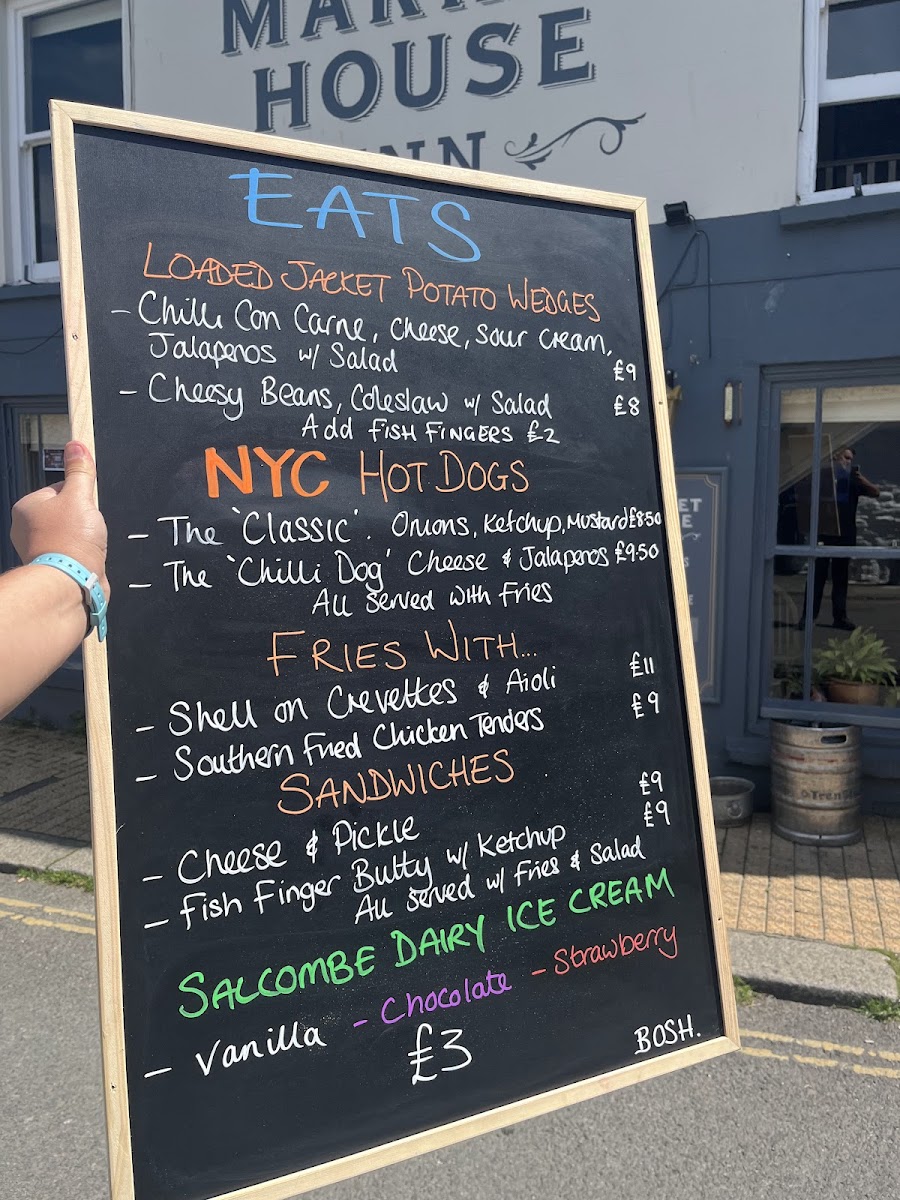 HOUSE
EATS
LOADED JACKET POTATO WEDGES
- Chilli Con Carne, Cheese, Sour Cream,
Jalapenos w/ Salad £9
- Cheesy Beans, Coleslaw w/ Salad £8
Add FISH FINGERS £2
NYC HOT DOGS
- The 'Classic'. Onions, Ketchup, Mustard £8.50
- The 'Chilli Dog' Cheese & Jalapenos £9.50
All Served with Fries
FRIES WITH...
- Shell on Crevettes & Aioli £11
- Southern Fried Chicken Tenders £9
SANDWICHES
- Cheese & Pickle £9
- Fish Finger Butty w/ Ketchup £9
All Served w/ Fries & Salad
SALCOMBE DAIRY ICE CREAM
- Vanilla - Chocolate - Strawberry
£3
BOSH.